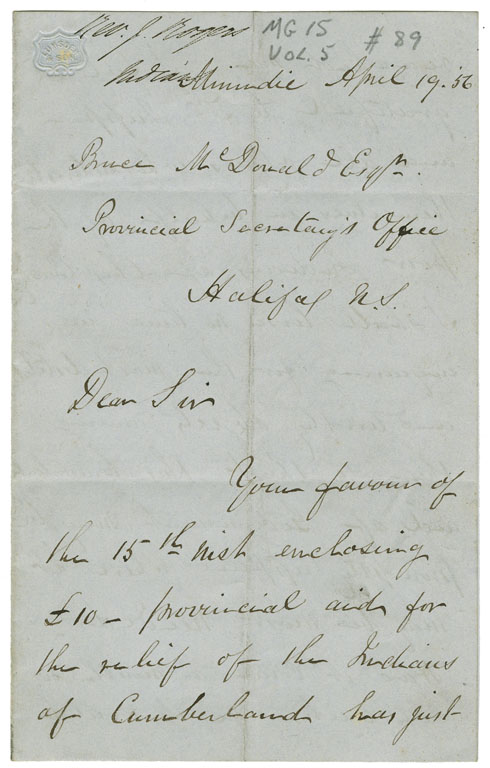 Rev. J. Rogers
MG 15
VOL. 5
# 89
Indian
Minudie April 19. 56
Bruce McDonald Esqr.
Provincial Secretary's Office
Halifax N.S.
Dear Sir
Your favour of
the 15th inst enclosing
£10 – provincial aid for
the relief of the Indians
of Cumberland has just